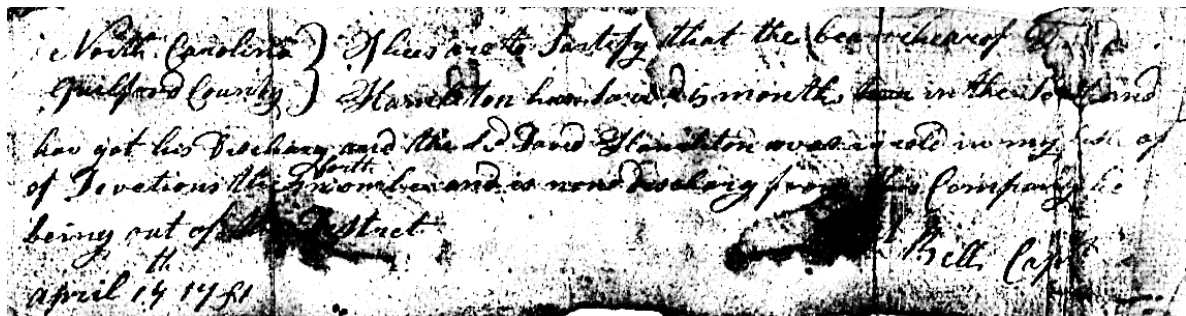 North Carolina } Thees are to Sartify that the bearer hearof
Guilford County } Hamilton has 5 months in the
hav got his Discharg and the Sd David Hamilton was inrold in my of
of Devetions the North nomber and is now discharg from this Company he
being out of the Destrect
Bell Capt
april 14th 1781